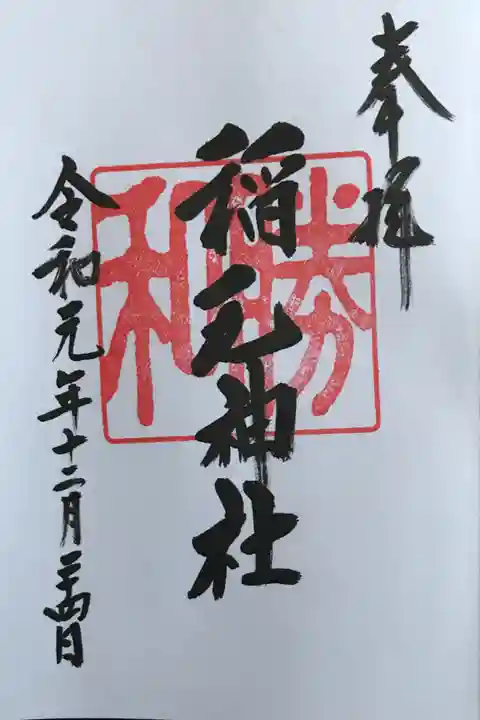 奉拝
稲毛神社
勝和
令和元年十二月二十四日